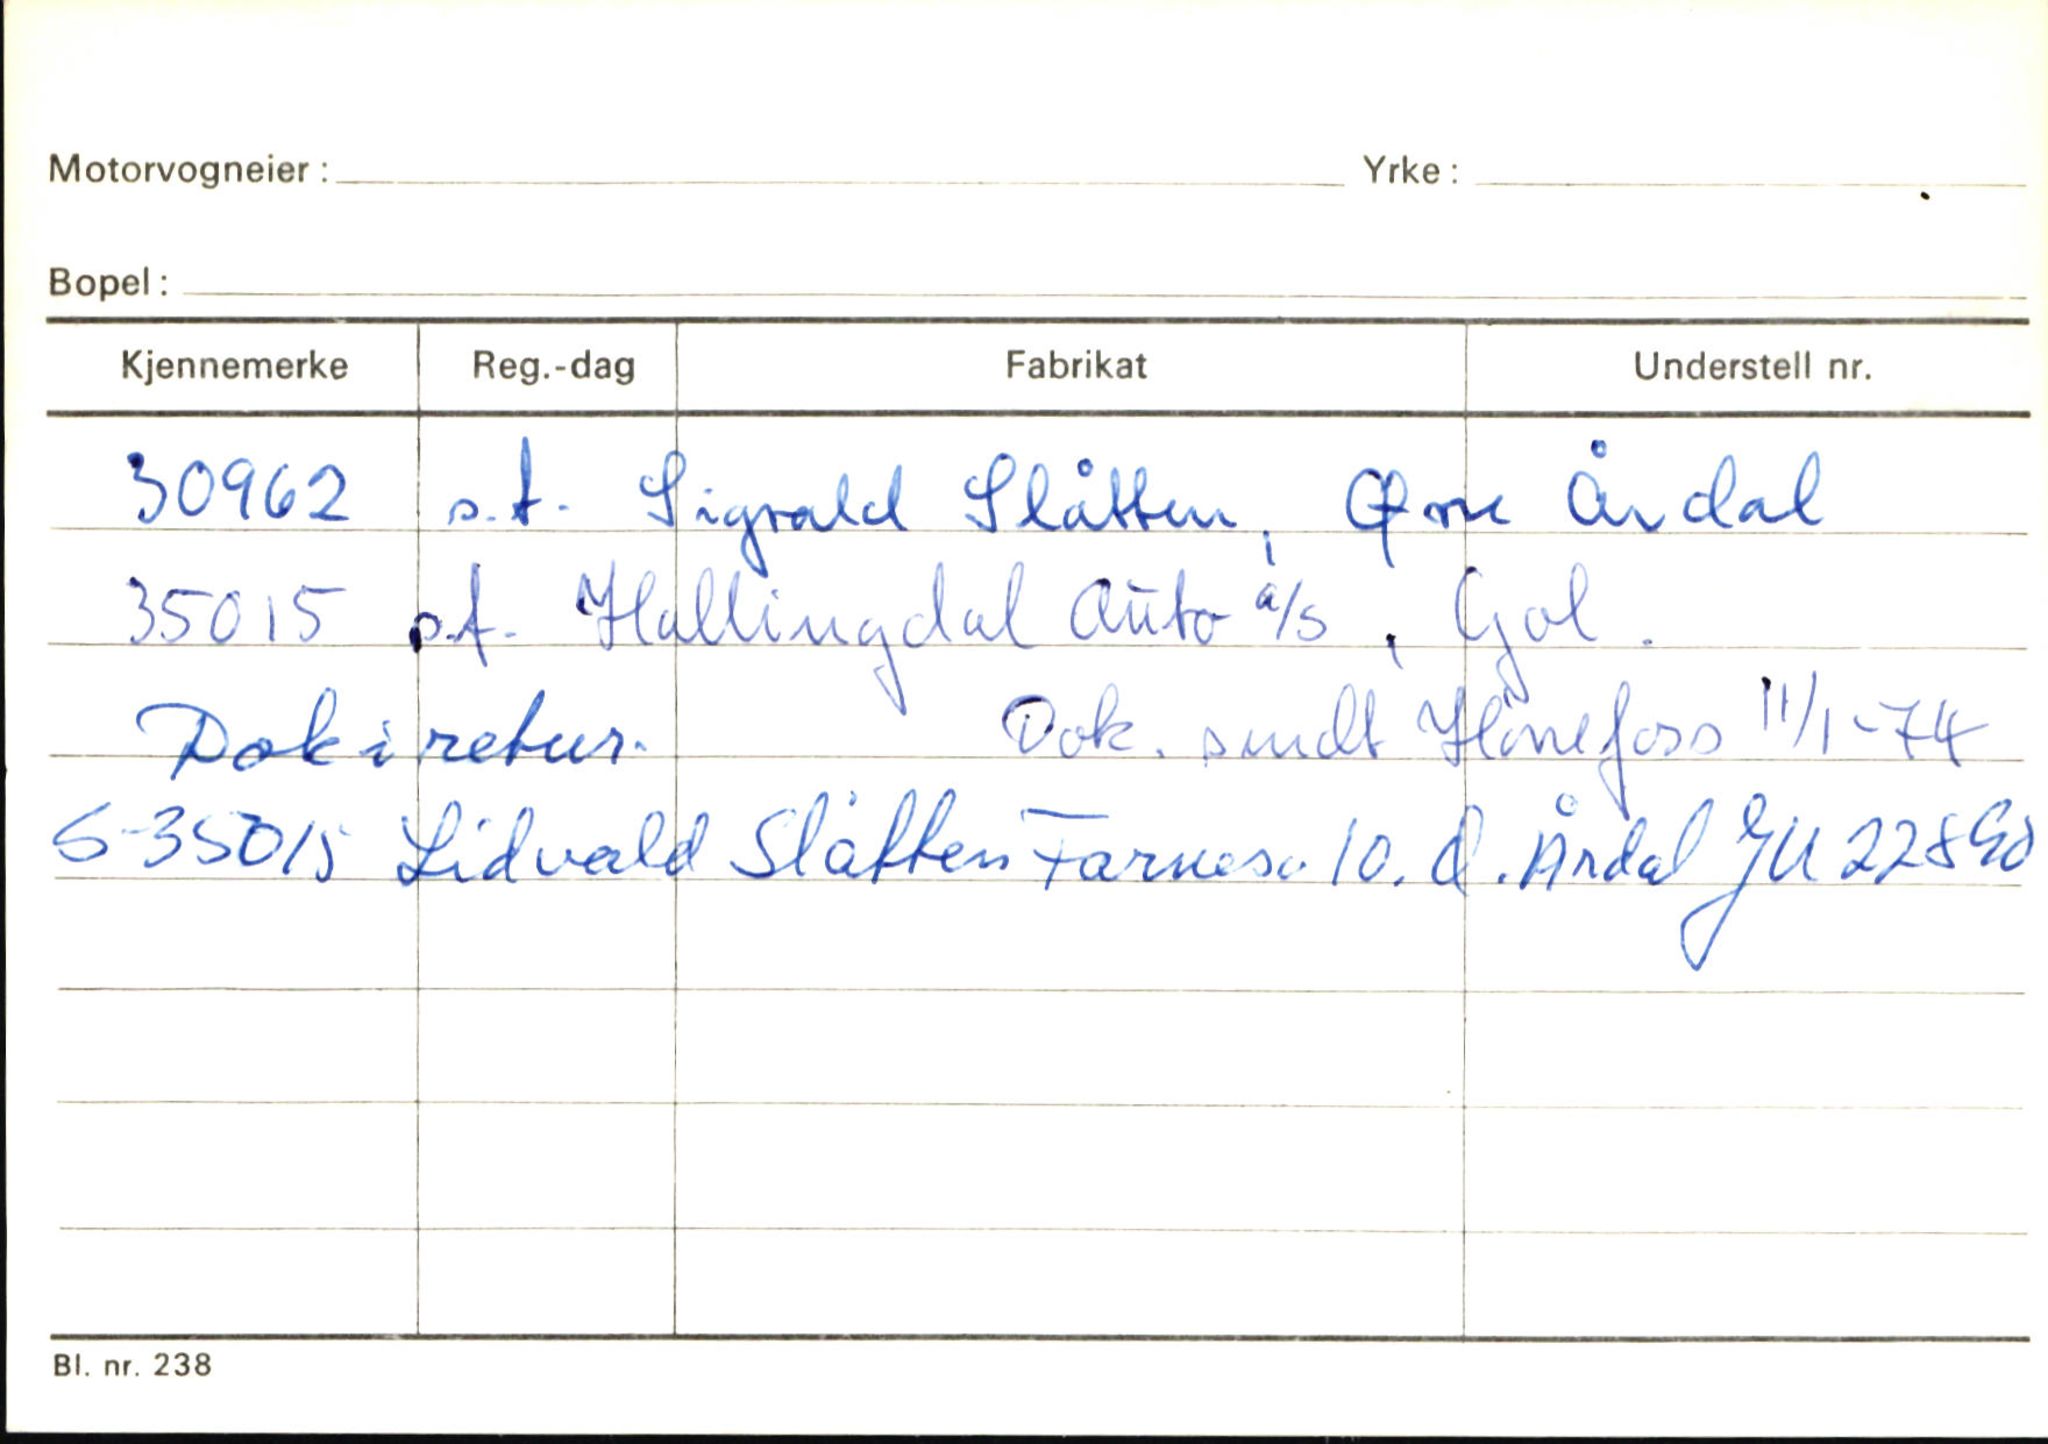 Motorvogneier: Yrke:
Bopel:
Kjennemerke Reg.-dag Fabrikat Understell nr.
30962 s.t. Sigvald Slåtten, Øvre Årdal
35015 s.t. Hallingdal Auto a/s, Gol.
Dok i retur. Dok. sendt Hönefoss 11/1-74
S-35015 Lidvald Slåtten Farnesv. 10. Ø. Årdal
Bl. nr. 238